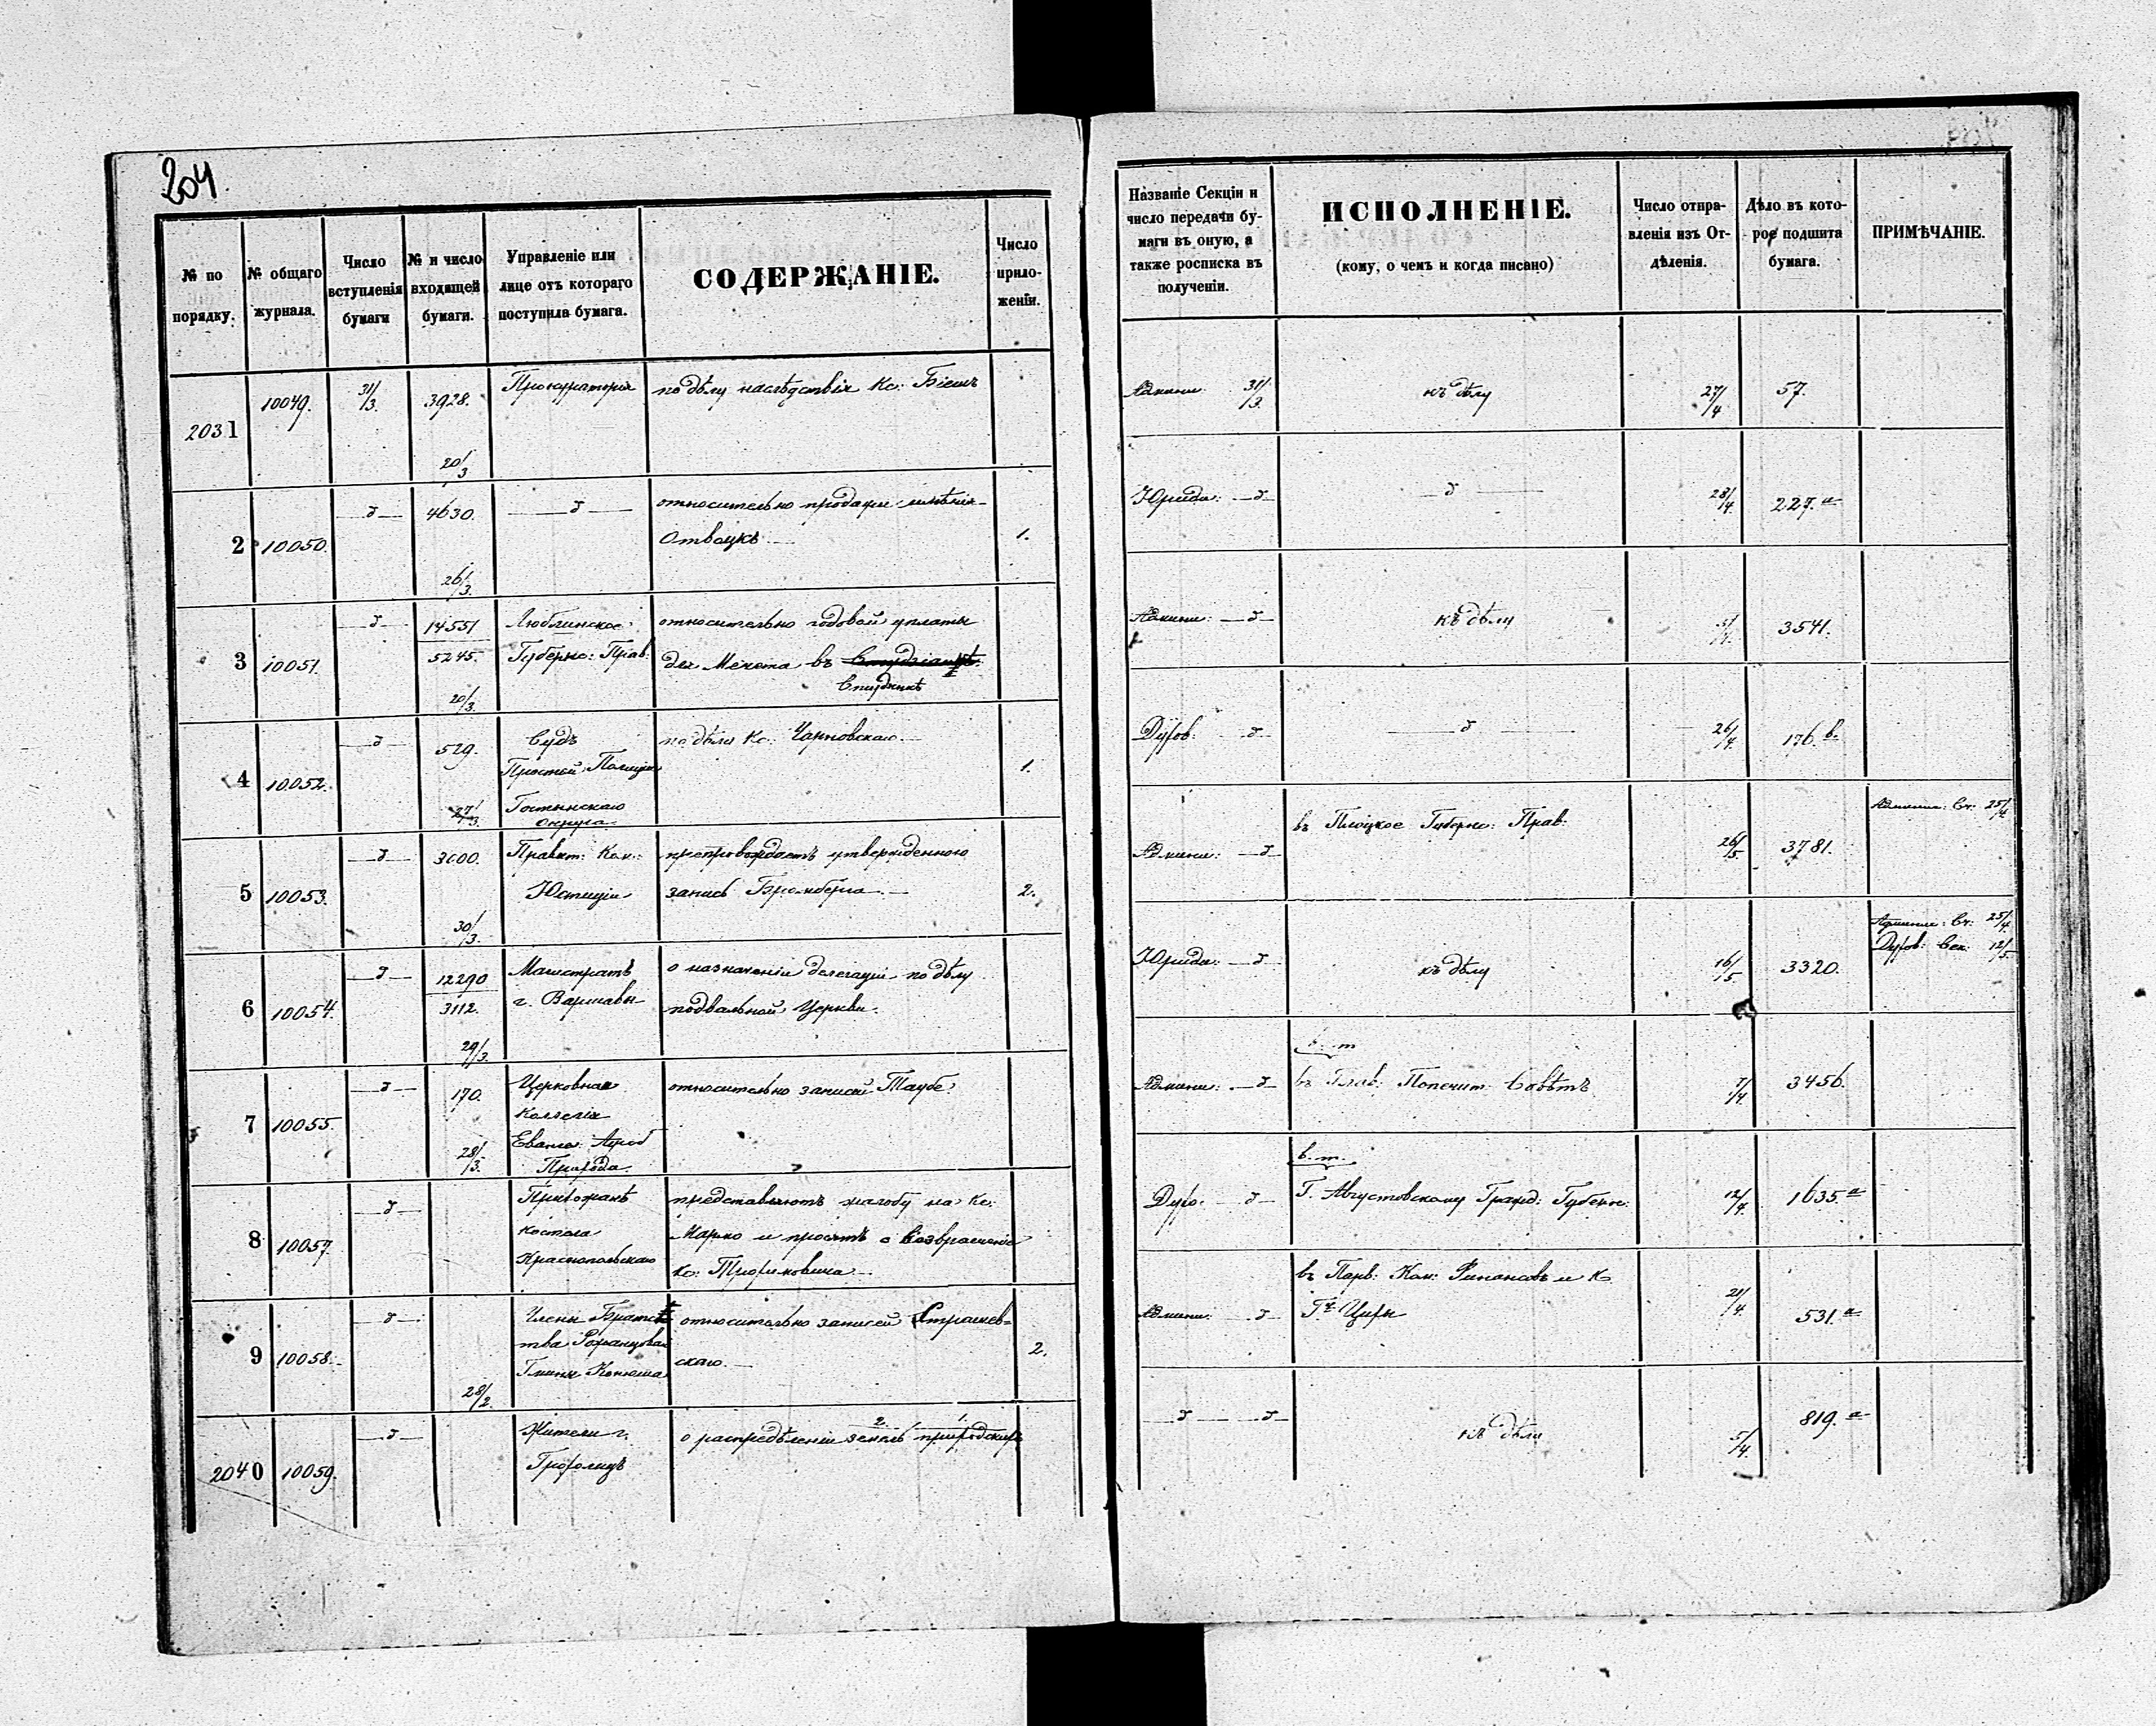 204.
№ по порядку.
№ общаго журнала.
Число вступленія бумаги
№ и число входящей бумаги.
Управленіе или лице отъ котораго поступила бумага.
СОДЕРЖАНІЕ.
Число приложеній.
2031 10049. 31/3. 3928. 20/3 Прокураторія
по дѣлу наслѣдствія Кс:
2 10050. —д— 4630. 26/3. —д—
относительно продажи имѣнія
Отвоцкъ 1.
3 10051. —д— 14551 5245. 20/3. Люблинское
Губерн: Прав:
относительно годовой уплаты
въ
4 10052. —д— 529. 27/3. Судъ
Простой Полиціи
Гостынскаго
округа.
по дѣлу Кс: Чарновскаго 1.
5 10053. —д— 3600. 30/3. Правит: Ком:
Юстиціи
препровождаетъ утвержденною
запись Бромберга 2.
6 10054. —д— 12290 3112. 29/3. Магистратъ
г. Варшавы
о назначеніи делегаціи по дѣлу
подвальной Церкви.
7 10055. —д— 170. 28/3. Церковная
Коллегія
Еванг:
Прихода.
относительно записей Таубе
8 10057. —д— Прихожане
костела
Краснопольскаго
представляютъ жалобу на Кс:
Марко и просятъ о возвращеніи
Кс: Трофимовича
9 10058. —д— 28/2. Члены Братс
тва Рожанцовая
Гмины Конюша
относительно записей Страшев=
скаго. 2.
2040 10059. —д— Жители г.
о распредѣленіи земель приходскихъ
2. 1.
Названіе Секціи и число передачи бумаги въ оную, а также росписка въ полученіи.
ИСПОЛНЕНІЕ.
(кому, о чемъ и когда писано)
Число отправленія изъ Отдѣленія.
Дѣло въ которое подшита бумага.
ПРИМѢЧАНІЕ.
Админи: 31/3. къ дѣлу 27/4 57.
Юриди: —д— —д— 28/4. 227. а
Админи: —д— къ дѣлу 3541.
Духов: —д— —д— 26/4. 176. в.
Админи: —д— въ Плоцкое Губерн: Прав: 26/5. 3781. Админи: Сч: 25/4
Юриди: —д— къ дѣлу 16/5. 3320. Админи: Сч: 25/4.
Духов: Сек: 12/5.
Админи: —д— в. т
въ Глав: Попечит. Совѣтъ 7/4. 3456.
Духо: —д— в. т.
Г. Августовскому Гражд: Губерн: 12/4. 1635. а
Админи: —д— въ Прав: Ком: Финансовъ и К
21/4. 531. а
—д— —д— къ дѣлу 5/4. 819. а